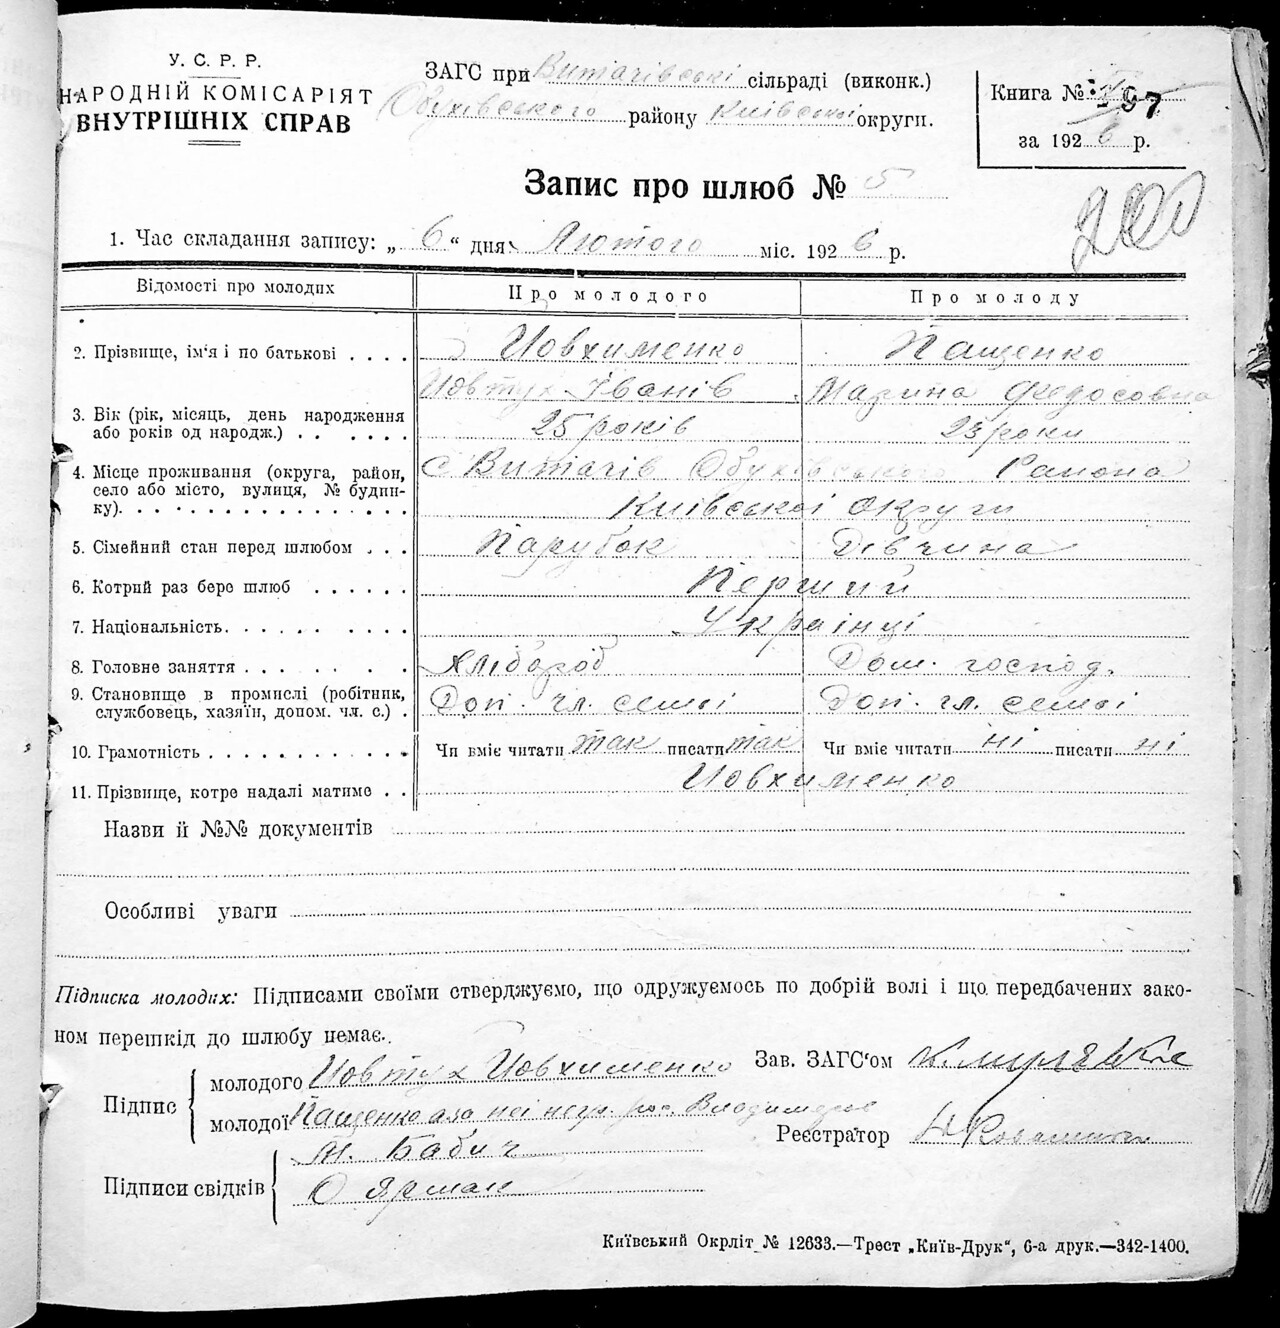 У. С. Р. Р.
НАРОДНІЙ КОМІСАРІЯТ
ВНУТРІШНІХ СПРАВ
ЗАГС при Витачівські сільраді (виконк.)
Обухівського району Київської округи.
Книга № 97
за 1926 р.
Запис про шлюб № 5
200
1. Час складання запису: „6“ дня Лютого міс. 1926 р.
Відомості про молодих Про молодого Про молоду
2. Прізвище, ім'я і по батькові . . . . Йовхименко Пащенко
Йовтух Іванів Марина Федосовна
3. Вік (рік, місяць, день народження
або років од народж.) . . . . . . . 25 років 23 роки
4. Місце проживання (округа, район,
село або місто, вулиця, № будин-
ку). . . . . . . . . . . . . . . . с Витачів Обухівського Района
Київської округи
5. Сімейний стан перед шлюбом . . . Парубок Дівчина
6. Котрий раз бере шлюб . . . . . . Перший
7. Національність. . . . . . . . . . Українці
8. Головне заняття . . . . . . . . Хлібороб Дом. господ.
9. Становище в промислі (робітник,
службовець, хазяїн, допом. чл. с.) . Доп. чл. семьї Доп. чл. семьї
10. Грамотність . . . . . . . . . . . Чи вміє читати так писати так Чи вміє читати ні писати ні
11. Прізвище, котре надалі матиме . . Йовхименко
Назви й №№ документів
Особливі уваги
Підписка молодих: Підписами своїми стверджуємо, що одружуємось по добрій волі і що передбачених зако-
ном перешкід до шлюбу немає.
Підпис
молодого Йовтух Йовхименко
молодої Пащенко а за неї негр. рос. Владимиров
Зав. ЗАГС'ом
Реєстратор
Підписи свідків
М. Бабич
О Ярмак
Київський Окрліт № 12633.—Трест „Київ-Друк“, 6-а друк.—342-1400.